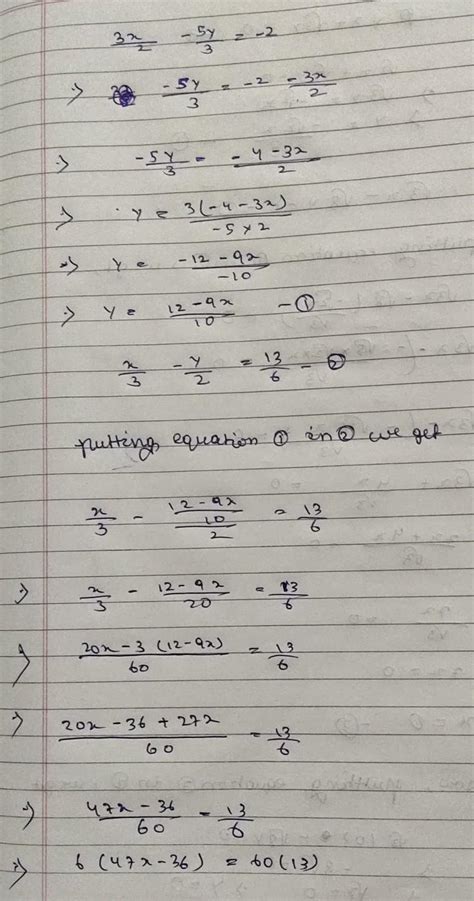 3x/2 - 5y/3 = -2
=> - 5y/3 = -2 - 3x/2
=> -5y/3 = -4-3x/2
=> y = 3(-4-3x)/-5×2
=> y = -12-9x/-10
=> y = 12-9x/10 - ①
x/3 - y/2 = 13/6 - ②
putting equation ① in ② we get
x/3 - 12-9x/10/2 = 13/6
=> x/3 - 12-9x/20 = 13/6
=> 20x-3(12-9x)/60 = 13/6
=> 20x-36+27x/60 = 13/6
=> 47x-36/60 = 13/6
=> 6(47x-36) = 60(13)